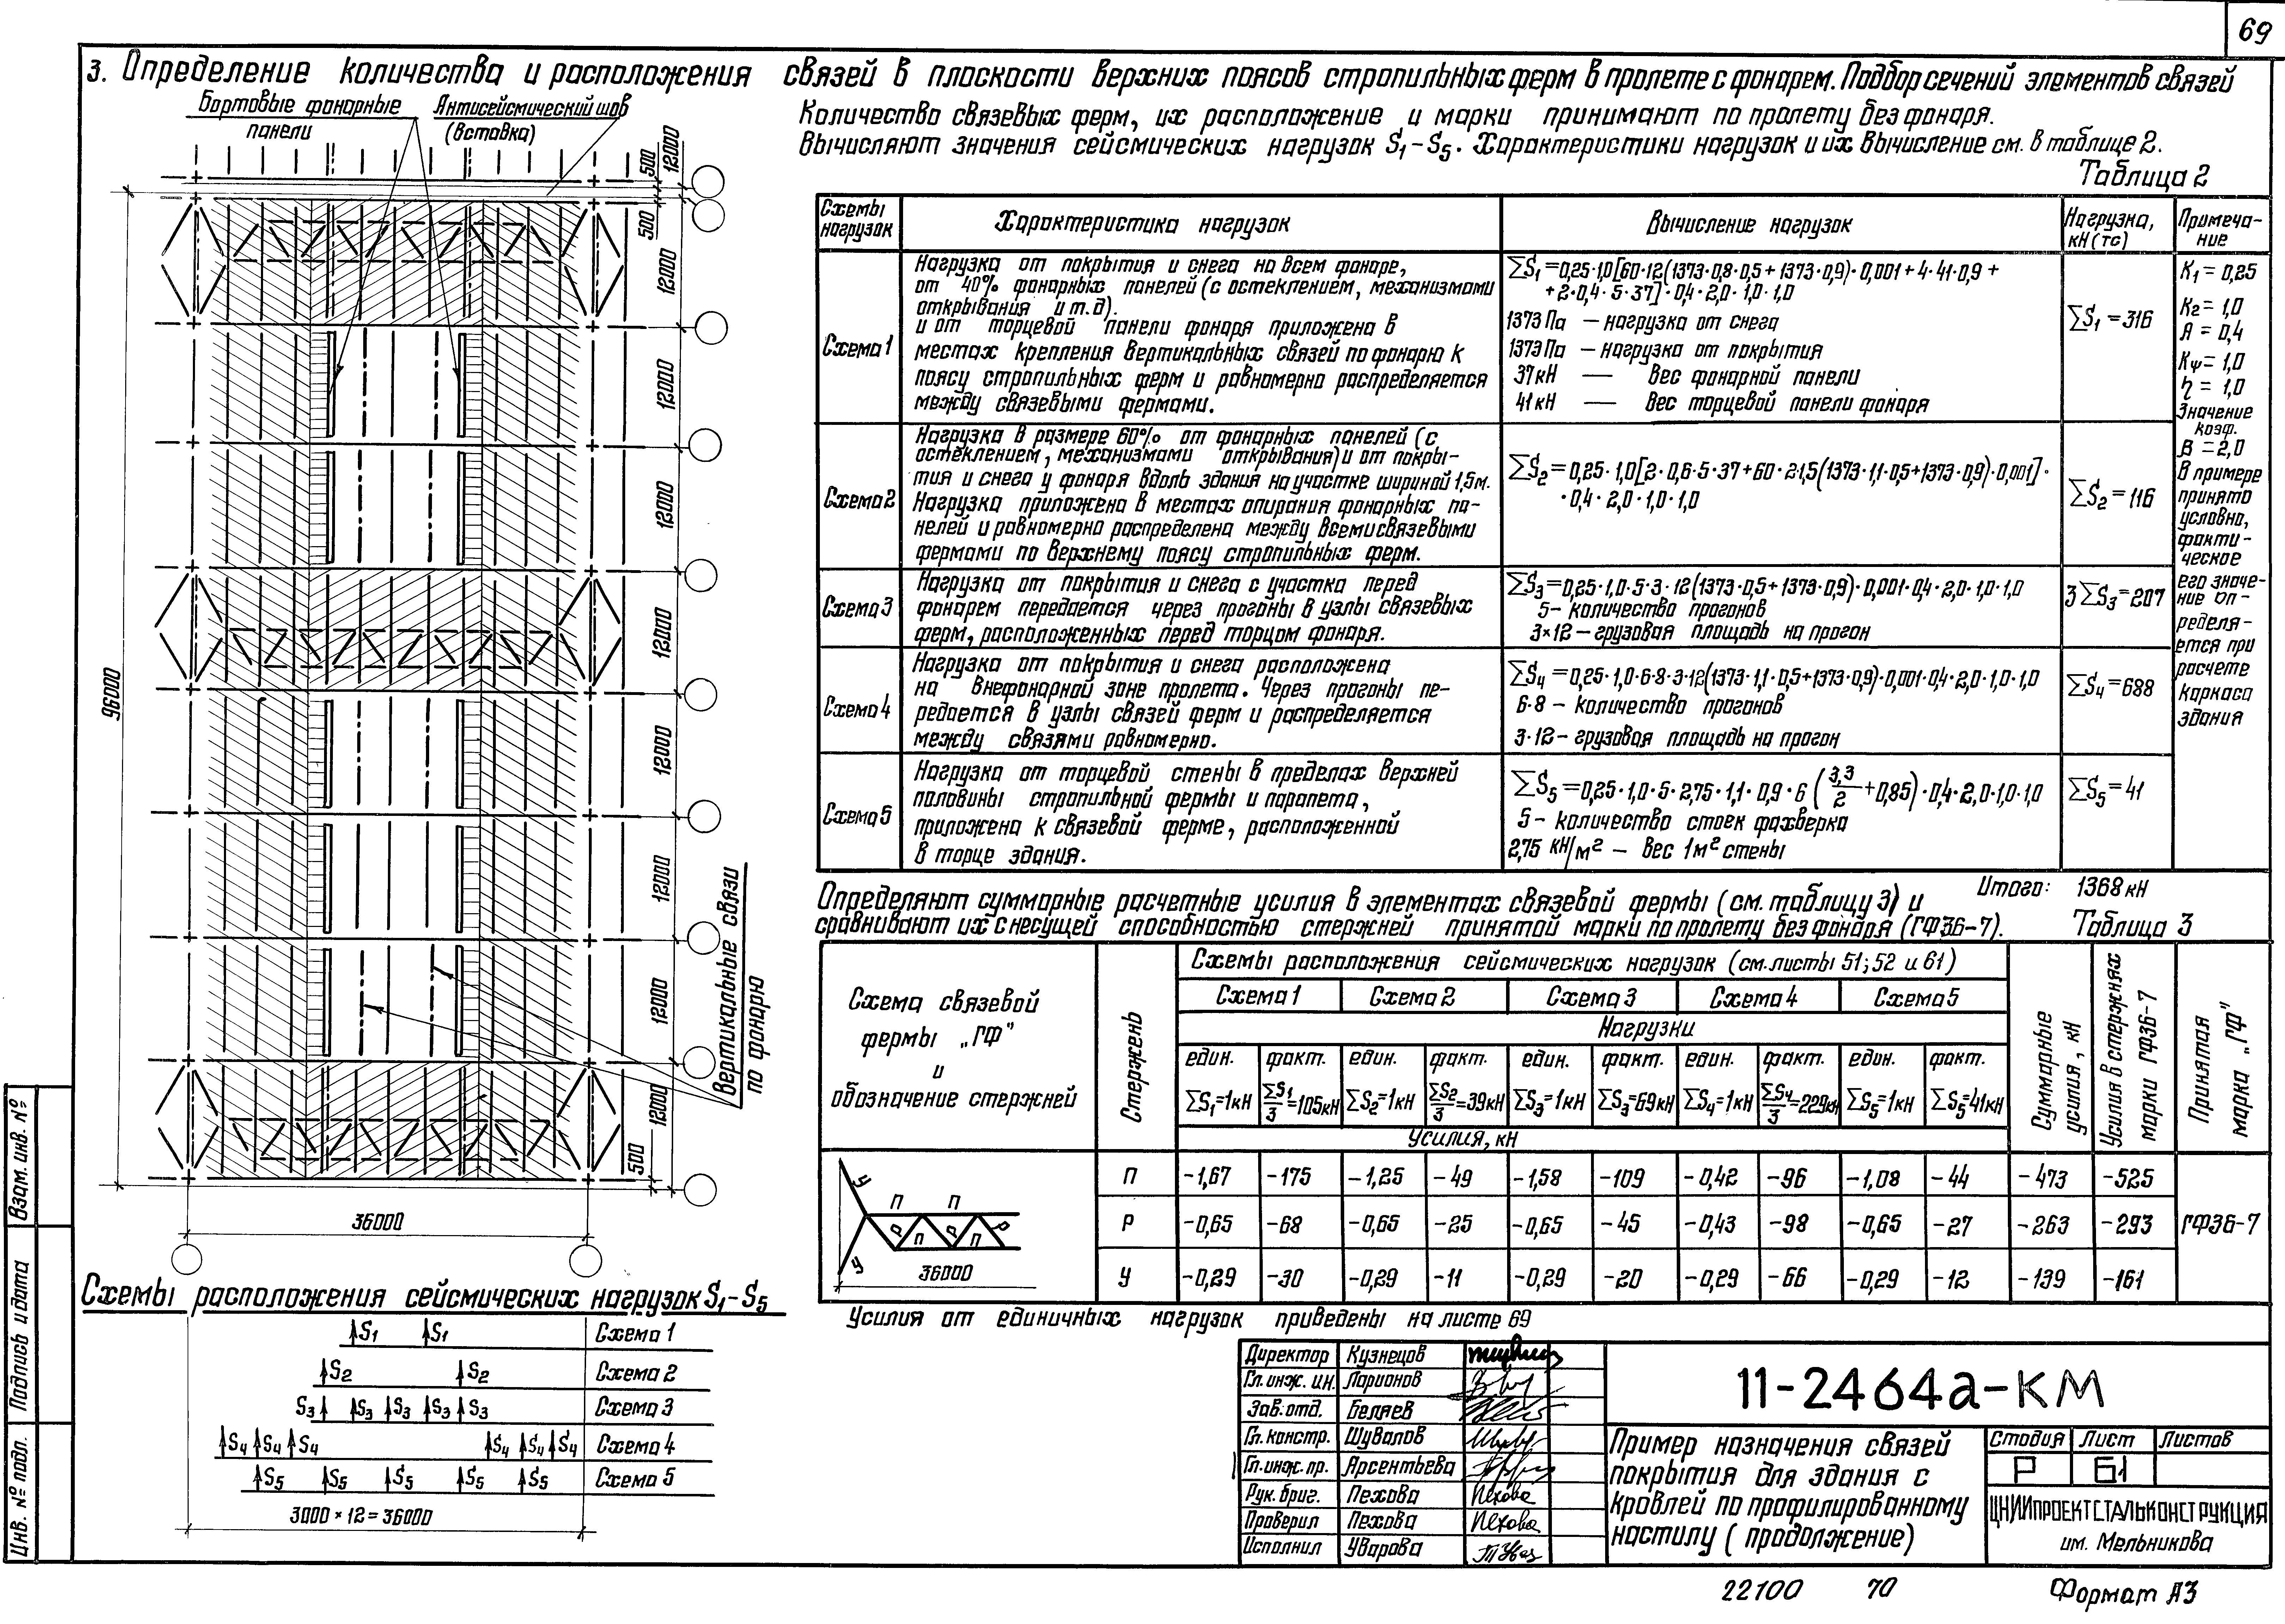 69
3. Определение количества и расположения связей в плоскости верхних поясов стропильных ферм в пролете с фонарем. Подбор сечений элементов связей
Бортовые фонарные
панели
Антисейсмический шов
(вставка)
500
12000
500
12000
12000
12000
12000
12000
12000
12000
12000
500
96000
36000
Вертикальные связи
по фонарю
Схемы расположения сейсмических нагрузок S1-S5
S1 S1 Схема 1
S2 S2 Схема 2
S3 S3 S3 S3 S3 Схема 3
S4 S4 S4 S4 S4 S4 Схема 4
S5 S5 S5 S5 S5 Схема 5
3000 × 12 = 36000
Количество связевых ферм, их расположение и марки принимают по пролету без фонаря.
Вычисляют значения сейсмических нагрузок S1-S5. Характеристики нагрузок и их вычисление см. в таблице 2.
Таблица 2
Схемы нагрузок
Характеристика нагрузок
Вычисление нагрузок
Нагрузка, кН (тс)
Примеча-
ние
Схема 1
Нагрузка от покрытия и снега на всем фонаре,
от 40% фонарных панелей (с остеклением, механизмами
открывания и т.д).
и от торцевой панели фонаря приложена в
местах крепления вертикальных связей по фонарю к
поясу стропильных ферм и равномерно распределяется
между связевыми фермами.
∑S1=0,25·1,0[60·12(1373·0,8·0,5+1373·0,9)·0,001+4·41·0,9+
+2·0,4·5·37]·0,4·2,0·1,0·1,0
1373 Па — нагрузка от снега
1373 Па — нагрузка от покрытия
37 кН — Вес фонарной панели
41 кН — Вес торцевой панели фонаря
∑S1=316
Схема 2
Нагрузка в размере 60% от фонарных панелей (с
остеклением, механизмами открывания) и от покры-
тия и снега у фонаря вдоль здания на участке шириной 1,5м.
Нагрузка приложена в местах опирания фонарных па-
нелей и равномерно распределена между всеми связевыми
фермами по верхнему поясу стропильных ферм.
∑S2=0,25·1,0[2·0,6·5·37+60·2·1,5(1373·1,1·0,5+1373·0,9)·0,001]·
·0,4·2,0·1,0·1,0
∑S2=116
Схема 3
Нагрузка от покрытия и снега с участка перед
фонарем передается через прогоны в узлы связевых
ферм, расположенных перед торцом фонаря.
∑S3=0,25·1,0·5·3·12(1373·0,5+1373·0,9)·0,001·0,4·2,0·1,0·1,0
5- количество прогонов
3×12 — грузовая площадь на прогон
3∑S3=207
Схема 4
Нагрузка от покрытия и снега расположена
на внефонарной зоне пролета. Через прогоны пе-
редается в узлы связей ферм и распределяется
между связями равномерно.
∑S4=0,25·1,0·6·8·3·12(1373·1,1·0,5+1373·0,9)·0,001·0,4·2,0·1,0·1,0
6·8 — количество прогонов
3·12 — грузовая площадь на прогон
∑S4=688
Схема 5
Нагрузка от торцевой стены в пределах верхней
половины стропильной фермы и парапета,
приложена к связевой ферме, расположенной
в торце здания.
∑S5=0,25·1,0·5·2,75·1,1·0,9·6(3,3/2+0,85)·0,4·2,0·1,0·1,0
5- количество стоек фахверка
2,75 кН/м² — Вес 1м² стены
∑S5=41
K1=0,25
K2=1,0
A=0,4
Kψ=1,0
η=1,0
Значение
коэф.
β=2,0
В примере
принято
условно,
факти-
ческое
его значе-
ние оп-
ределя-
ется при
расчете
каркаса
здания
Итого: 1368 кН
Определяют суммарные расчетные усилия в элементах связевой фермы (см. таблицу 3) и
сравнивают их с несущей способностью стержней принятой марки по пролету без фонаря (ГФ36-7).
Таблица 3
Схема связевой
фермы „ГФ"
и
обозначение стержней
Стержень
Схемы расположения сейсмических нагрузок (см. листы 51; 52 и 61)
Схема 1 Схема 2 Схема 3 Схема 4 Схема 5
Нагрузки
един. факт. един. факт. един. факт. един. факт. един. факт.
∑S1=1кН ∑S1/3=105кН ∑S2=1кН ∑S2/3=39кН ∑S3=1кН ∑S3=69кН ∑S4=1кН ∑S4/3=229кН ∑S5=1кН ∑S5=41кН
Усилия, кН
Суммарные усилия, кН
Усилия в стержнях марки ГФ36-7
Принятая марка „ГФ"
П -1,67 -175 -1,25 -49 -1,58 -109 -0,42 -96 -1,08 -44 -473 -525
Р -0,65 -68 -0,65 -25 -0,65 -45 -0,43 -98 -0,65 -27 -263 -293 ГФ36-7
У -0,29 -30 -0,29 -11 -0,29 -20 -0,29 -66 -0,29 -12 -139 -161
У П П
Р П Р П Р
У 36000
Усилия от единичных нагрузок приведены на листе 69
Директор Кузнецов
Гл. инж. ин. Ларионов
Зав. отд. Беляев
Гл. констр. Шувалов
Гл. инж. пр. Арсентьева
Рук. бриг. Пехова Пехова
Проверил Пехова Пехова
Исполнил Уварова
11-2464а-КМ
Пример назначения связей
покрытия для здания с
кровлей по профилированному
настилу (продолжение)
Стадия Лист Листов
Р 61
ЦНИИПРОЕКТСТАЛЬКОНСТРУКЦИЯ
им. Мельникова
Взам. инв. №
Подпись и дата
Инв. № подл.
22100 70 Формат А3